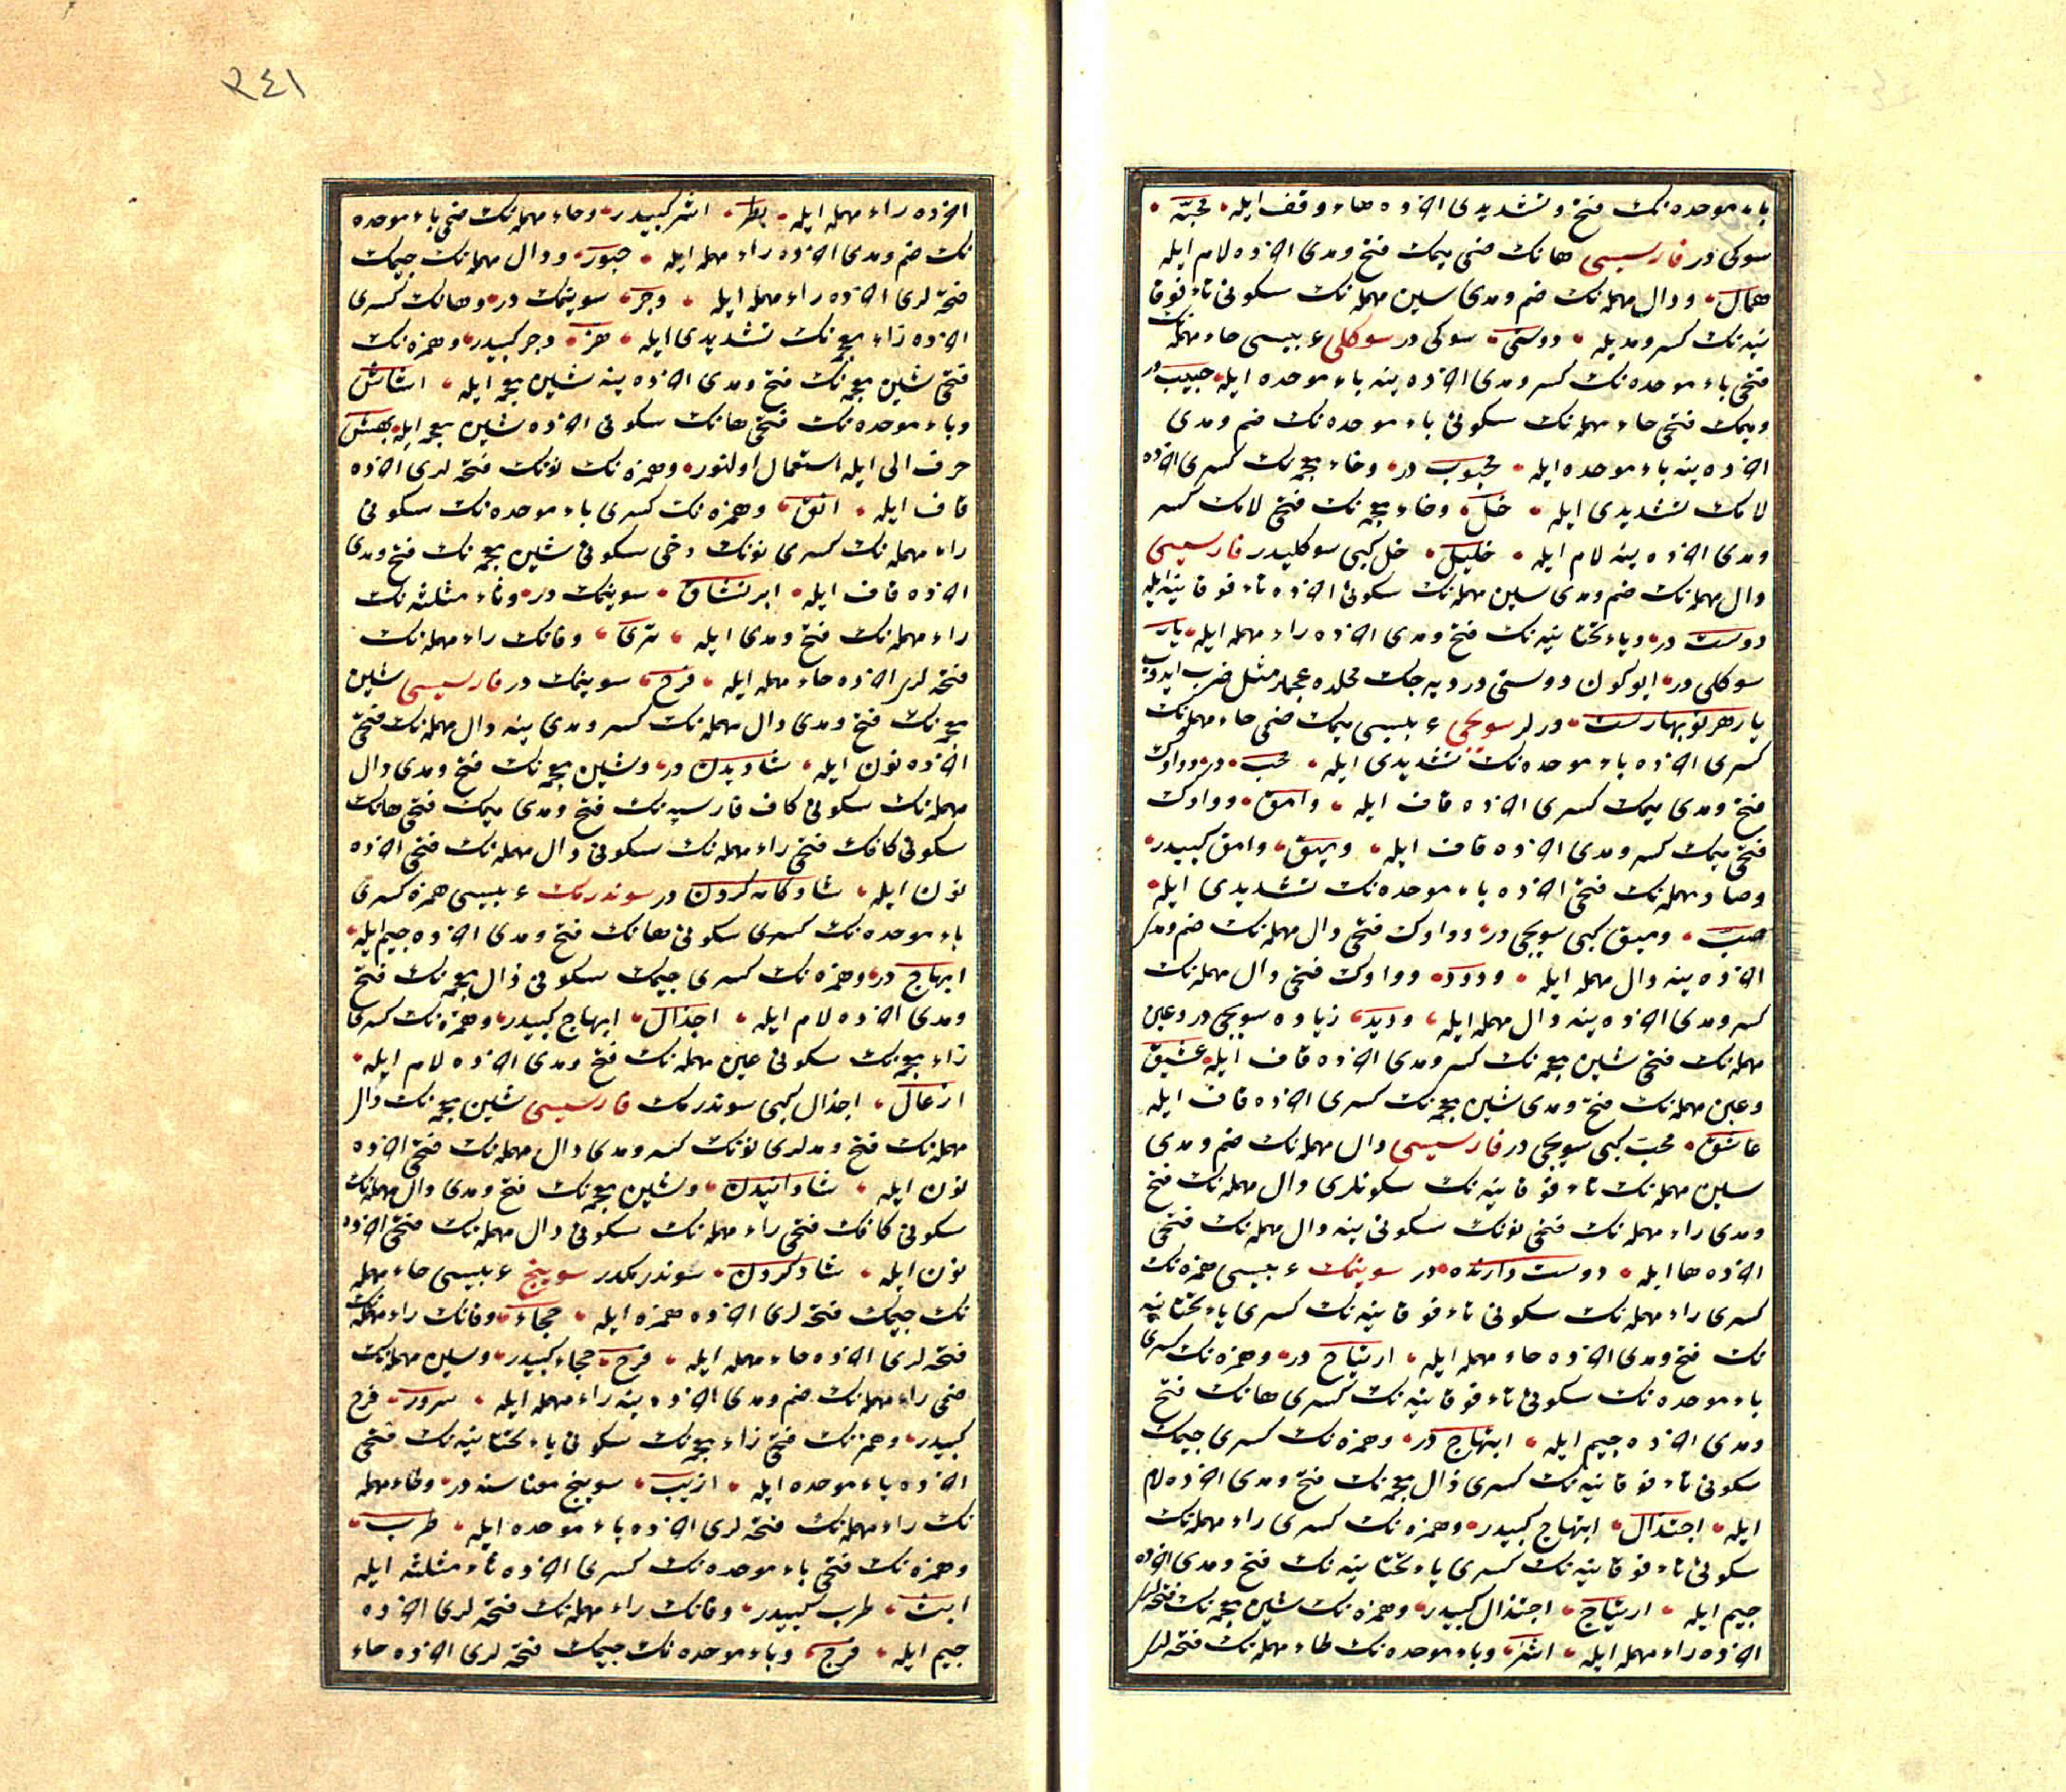 باء موحده نك فتح و تشديدى اخرده هاء وقف ايله محبّه
سوكى در فارسيسى هانك ضمى ميمك فتح و مدى اخرده لام ايله
همال ودال مهمله نك ضم و مدى سين مهمله نك سكونى تاء فوقا
نيه نك كسر و مديله دوستى سوكى در سوكلى عربيسى حاء مهمله نك
فتحى باء موحده نك كسر و مدى اخرده ينه باء موحده ايله حبيب در
وميمك فتحى حاء مهمله نك سكونى باء موحده نك ضم و مدى
اخرده ينه باء موحده ايله محبوب در وخاء معجمه نك كسرى اخرده
لامك تشديدى ايله خلّ وخاء معجمه نك فتحى لامك كسر
ومدى اخرده ينه لام ايله خليل خل كبى سوكليدر فارسيسى
دال مهمله نك ضم و مدى سين مهمله نك سكونى اخرده تاء فوقانيه ايله
دوست در وياء تحتانيه نك فتح و مدى اخرده راء مهمله ايله يار
سوكلى در ابو كون دوستى در ديه جك محلده عجملر مثل ضرب ايدوب
يار هر نو بهارست درلر سويجى عربيسى ميمك ضمى حاء مهمله نك
كسرى اخرده باء موحده نك تشديدى ايله محبّ در وواوك
فتح و مدى ميمك كسرى اخرده قاف ايله وامق وواوك
فتحى ميمك كسر و مدى اخرده قاف ايله وميق وامق كبيدر
وصاد مهمله نك فتحى اخرده باء موحده نك تشديدى ايله
صبّ وميق كبى سويجى در وواوك فتحى دال مهمله نك ضم و مدى
اخرده ينه دال مهمله ايله ودود وواوك فتحى دال مهمله نك
كسر و مدى اخرده ينه دال مهمله ايله وديد زياده سويجى در وعين
مهمله نك فتحى شين معجمه نك كسر و مدى اخرده قاف ايله عشيق
وعين مهمله نك فتح و مدى شين معجمه نك كسرى اخرده قاف ايله
عاشق محبّ كبى سويجى در فارسيسى دال مهمله نك ضم و مدى
سين مهمله نك تاء فوقانيه نك سكونلرى دال مهمله نك فتح
ومدى راء مهمله نك فتحى نونك سكونى ينه دال مهمله نك فتحى
اخرده ها ايله دوست دارنده در سوينمك عربيسى همزه نك
كسرى راء مهمله نك سكونى تاء فوقانيه نك كسرى ياء تحتانيه
نك فتح و مدى اخرده حاء مهمله ايله ارتياح در وهمزه نك كسرى
باء موحده نك سكونى تاء فوقانيه نك كسرى هانك فتح
ومدى اخرده جيم ايله ابتهاج در وهمزه نك كسرى جيمك
سكونى تاء فوقانيه نك كسرى ذال معجمه نك فتح و مدى اخرده لام
ايله اجتذال ابتهاج كبيدر وهمزه نك كسرى راء مهمله نك
سكونى تاء فوقانيه نك كسرى ياء تحتانيه نك فتح و مدى اخرده
جيم ايله ارتياج اجتذال كبيدر وهمزه نك شين معجمه نك فتحه لرى
اخرده راء مهمله ايله اشر وباء موحده نك طاء مهمله نك فتحه لرى
٢٤١
اخرده راء مهمله ايله بطر اشر كبيدر وحاء مهمله نك ضمى باء موحده
نك ضم و مدى اخرده راء مهمله ايله حبور ودال مهمله نك جيمك
فتحه لرى اخرده راء مهمله ايله دجر سوينمك در وهانك كسرى
اخرده زاء معجمه نك تشديدى ايله هزّ دجر كبيدر وهمزه نك
فتحى شين معجمه نك فتح و مدى اخرده ينه شين معجمه ايله اشاش
وباء موحده نك فتحى هانك سكونى اخرده شين معجمه ايله بهش
حرف الى ايله استعمال اولنور وهمزه نك نونك فتحه لرى اخرده
قاف ايله انق وهمزه نك كسرى باء موحده نك سكونى
راء مهمله نك كسرى نونك دخى سكونى شين معجمه نك فتح و مدى
اخرده قاف ايله ابرنشاق سوينمك در وثاء مثلثه نك
راء مهمله نك فتح و مدى ايله ثرى وفانك راء مهمله نك
فتحه لرى اخرده حاء مهمله ايله فرح سوينمك در فارسيسى شين
معجمه نك فتح و مدى دال مهمله نك كسر و مدى ينه دال مهمله نك فتحى
اخرده نون ايله شاديدن در وشين معجمه نك فتح و مدى دال
مهمله نك سكونى كاف فارسيه نك فتح و مدى ميمك فتحى هانك
سكونى كافك فتحى راء مهمله نك سكونى دال مهمله نك فتحى اخرده
نون ايله شادكامه كردن در سوندرمك عربيسى همزه كسرى
باء موحده نك كسرى سكونى هانك فتح و مدى اخرده جيم ايله
ابهاج در وهمزه نك كسرى جيمك سكونى ذال معجمه نك فتح
ومدى اخرده لام ايله اجذال ابهاج كبيدر وهمزه نك كسرى
زاء معجمه نك سكونى عين مهمله نك فتح و مدى اخرده لام ايله
ازعال اجذال كبى سوندرمك فارسيسى شين معجمه نك دال
مهمله نك فتح و مدلرى نونك كسر و مدى دال مهمله نك فتحى اخرده
نون ايله شادانيدن وشين معجمه نك فتح و مدى دال مهمله نك
سكونى كافك فتحى راء مهمله نك سكونى دال مهمله نك فتحى اخرده
نون ايله شاد كردن سوندرمكدر سوينج عربيسى حاء مهمله
نك جيمك فتحه لرى اخرده همزه ايله حجاء وفانك راء مهمله نك
فتحه لرى اخرده حاء مهمله ايله فرح حجاء كبيدر وسين مهمله نك
ضمى راء مهمله نك ضم و مدى اخرده ينه راء مهمله ايله سرور فرح
كبيدر وهمزنك فتحى زاء معجمه نك سكونى ياء تحتانيه نك فتحى
اخرده باء موحده ايله ازيب سوينج معناسنه در وطاء مهمله
نك راء مهمله نك فتحه لرى اخرده باء موحده ايله طرب
وهمزه نك فتحى باء موحده نك كسرى اخرده ثاء مثلثه ايله
ابث طرب كبيدر وفانك راء مهمله نك فتحه لرى اخرده
جيم ايله فرج وباء موحده نك جيمك فتحه لرى اخرده حاء